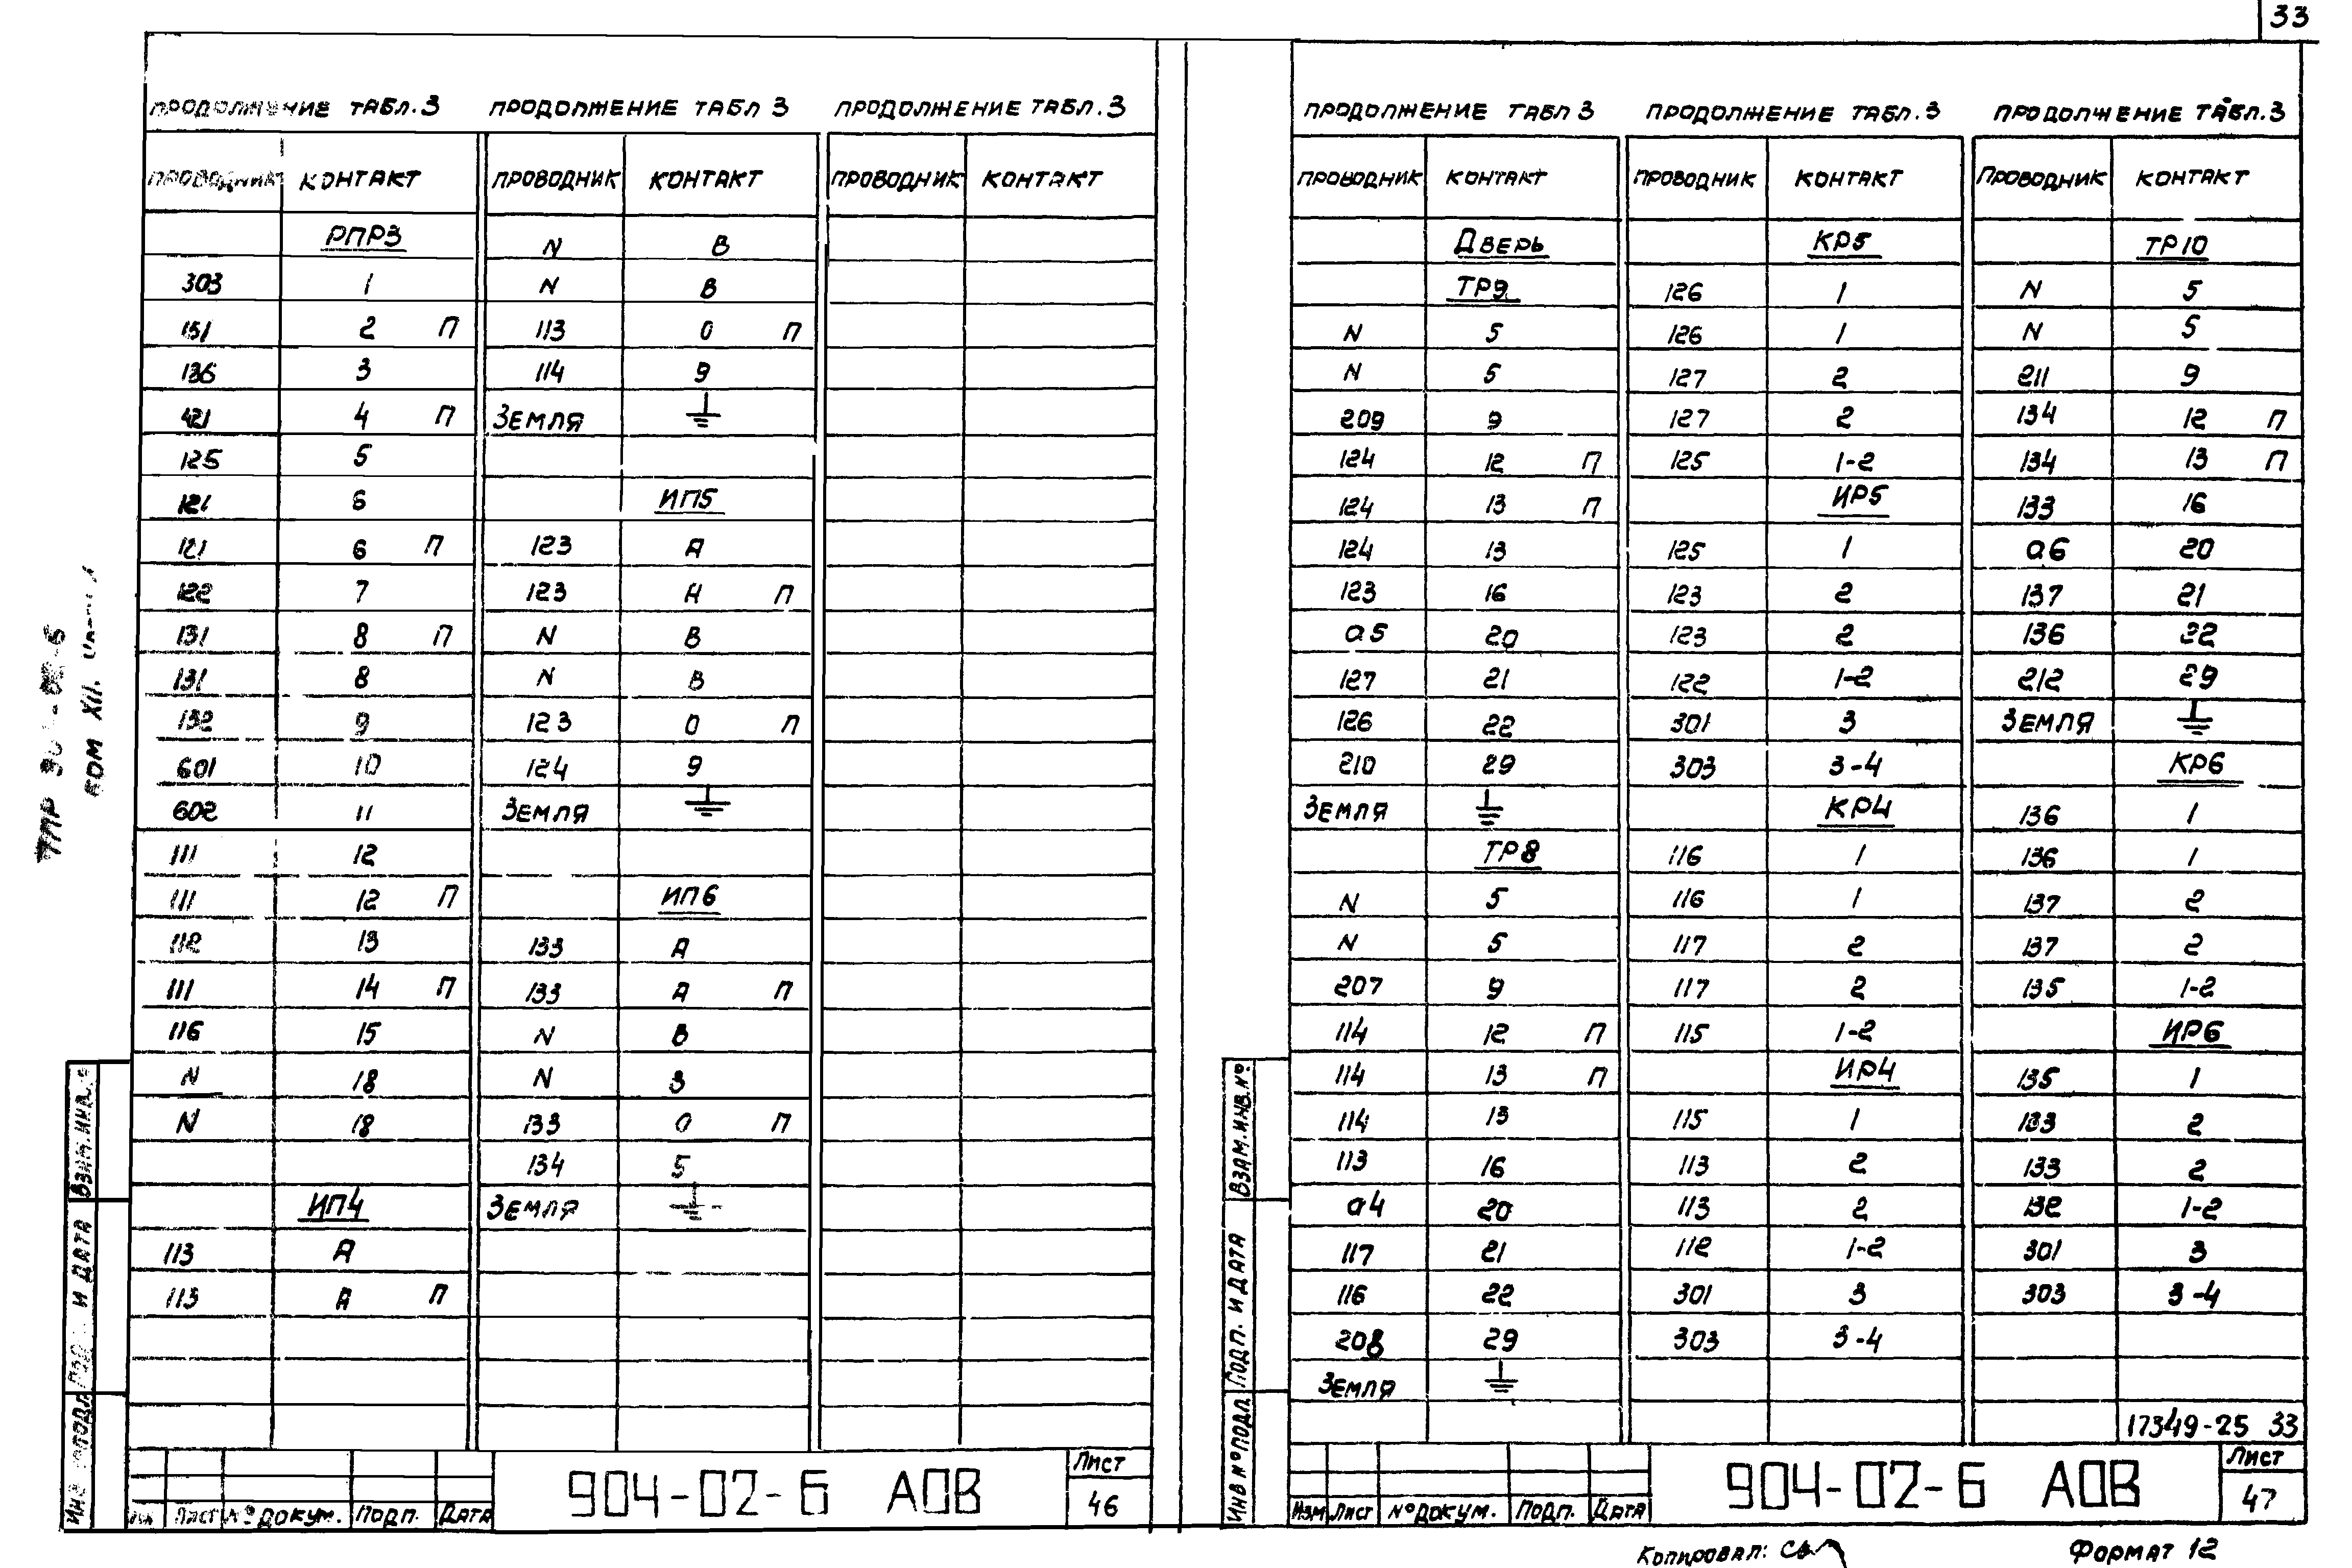 33
ПРОДОЛЖЕНИЕ ТАБЛ.3
ПРОВОДНИК КОНТАКТ
РПР3
303 1
151 2 П
136 3
421 4 П
125 5
121 6
121 6 П
122 7
131 8 П
131 8
132 9
601 10
602 11
111 12
111 12 П
112 13
111 14 П
116 15
N 18
N 18
ИП4
113 А
113 А П
ПРОДОЛЖЕНИЕ ТАБЛ 3
ПРОВОДНИК КОНТАКТ
N В
N В
113 0 П
114 9
ЗЕМЛЯ
ИП5
123 А
123 А П
N В
N В
123 0 П
124 9
ЗЕМЛЯ
ИП6
133 А
133 А П
N В
N З
133 0 П
134 5
ЗЕМЛЯ
ПРОДОЛЖЕНИЕ ТАБЛ.3
ПРОВОДНИК КОНТАКТ
ВЗАМ.ИНВ.№
И ДАТА
904-02-6 АОВ
ЛИСТ
46
ЛИСТ № ДОКУМ. ПОДП. ДАТА
ПРОДОЛЖЕНИЕ ТАБЛ 3
ПРОВОДНИК КОНТАКТ
ДВЕРЬ
ТР9
N 5
N 5
209 9
124 12 П
124 13 П
124 13
123 16
а5 20
127 21
126 22
210 29
ЗЕМЛЯ
ТР8
N 5
N 5
207 9
114 12 П
114 13 П
114 13
113 16
а4 20
117 21
116 22
208 29
ЗЕМЛЯ
ПРОДОЛЖЕНИЕ ТАБЛ.3
ПРОВОДНИК КОНТАКТ
КР5
126 1
126 1
127 2
127 2
125 1-2
ИР5
125 1
123 2
123 2
122 1-2
301 3
303 3-4
КР4
116 1
116 1
117 2
117 2
115 1-2
ИР4
115 1
113 2
113 2
112 1-2
301 3
303 3-4
ПРОДОЛЖЕНИЕ ТАБЛ.3
ПРОВОДНИК КОНТАКТ
ТР10
N 5
N 5
211 9
134 12 П
134 13 П
133 16
а6 20
137 21
136 22
212 29
ЗЕМЛЯ
КР6
136 1
136 1
137 2
137 2
135 1-2
ИР6
135 1
133 2
133 2
132 1-2
301 3
303 3-4
17349-25 33
ВЗАМ.ИНВ.№
ПОДП. И ДАТА
ИНВ №ПОДЛ.
904-02-6 АОВ
ЛИСТ
47
ИЗМ ЛИСТ № ДОКУМ. ПОДП. ДАТА
КОПИРОВАЛ:
ФОРМАТ 12